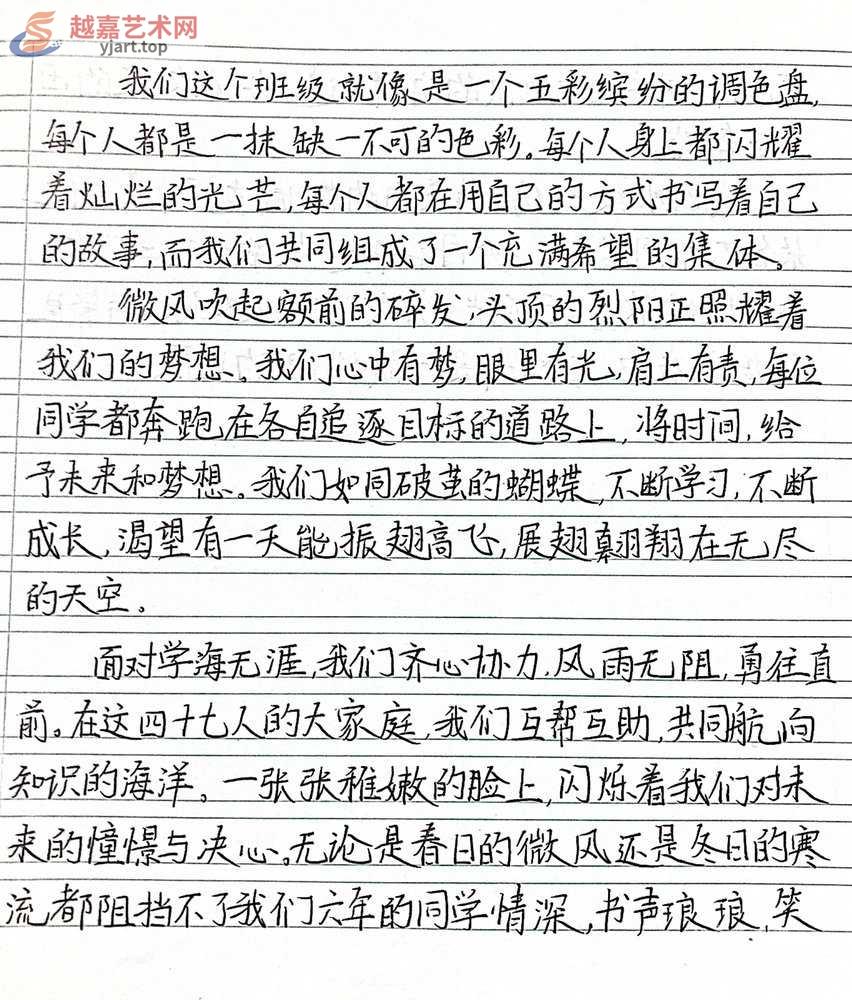 越嘉艺术网
yjart.top
我们这个班级就像是一个五彩缤纷的调色盘,
每个人都是一抹缺一不可的色彩。每个人身上都闪耀
着灿烂的光芒,每个人都在用自己的方式书写着自己
的故事,而我们共同组成了一个充满希望的集体。
微风吹起额前的碎发,头顶的烈阳正照耀着
我们的梦想。我们心中有梦,眼里有光,肩上有责,每位
同学都奔跑在各自追逐目标的道路上,将时间,给
予未来和梦想。我们如同破茧的蝴蝶,不断学习,不断
成长,渴望有一天能振翅高飞,展翅翱翔在无尽
的天空。
面对学海无涯,我们齐心协力,风雨无阻,勇往直
前。在这四十七人的大家庭,我们互帮互助,共同航向
知识的海洋。一张张稚嫩的脸上,闪烁着我们对未
来的憧憬与决心。无论是春日的微风还是冬日的寒
流都阻挡不了我们六年的同学情深,书声琅琅,笑